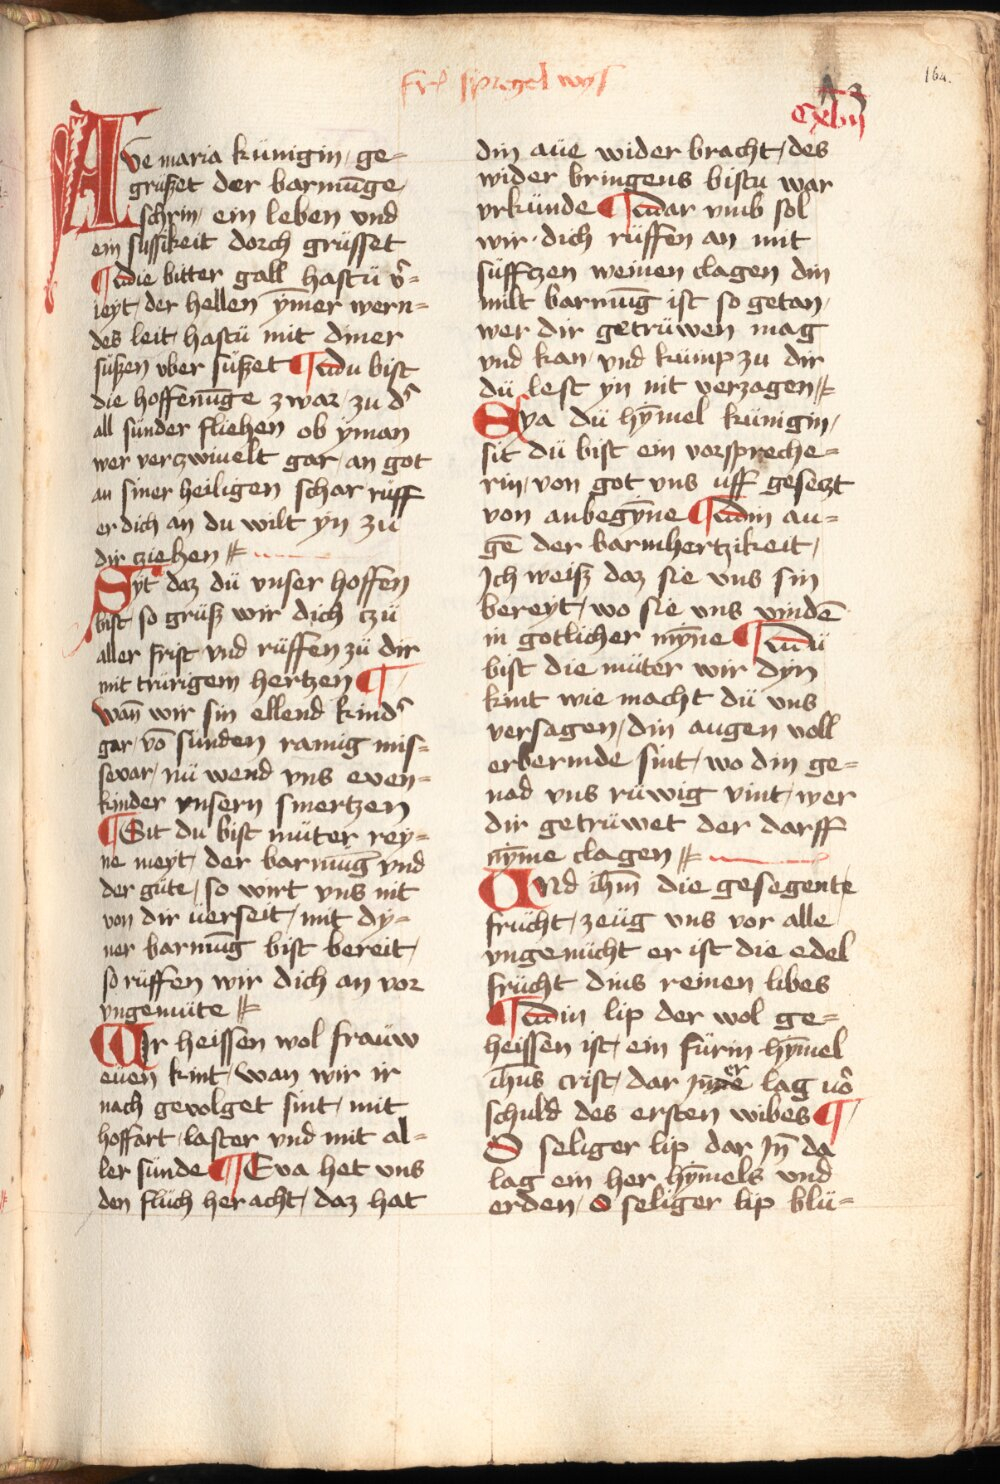 fr spiegel wys
164.
A 3
cxlvij
Ave maria künigin, ge=
grüßet der barmūge
schrin, ein leben vnd
ein sussikeit dorch grüsset
¶ Die bitter gall hastu v̾=
ieyt, der hellen ȳmer wern=
des leit, hastü mit diner
süßen vber süßet ¶ Du bist
die hoffenūge zwar, zu d̾
all sunder fliehen ob yman
wer verczwiuelt gar, an got
an siner heiligen schar rüff
er dich an du wilt yn zu
dir cziehen
Syt daz dü vnser hoffen
bist, so grüß wir dich czü
aller frist vnd rüffen zü dir
mit trürigem hertzen ¶
wan̄ wir sin ellend kind̾
gar, vō sunden ramig mis=
sevar, nü wend vns even=
kinder vnsern smertzen
¶ Sit du bist müter rey=
ne meyt, der barmūg vnd
der güte, so wirt vns nit
von dir üerseit, mit dy=
ner barmūg bist bereit,
so rüffen wir dich an vor
vngemüte
Wir heissen wol fraüw
euen kint, wan wir ir
nach gevolget sint, mit
hoffart, laster vnd mit al=
ler sünde ¶ Eva het vns
den flüch her acht, daz hat
din aüe wider bracht, des
wider bringens bistu war
vrkünde ¶ Dar vmb sol
wir dich rüffen an mit
süfftzen weinen clagen din
milt barmūg ist so getan,
wer dir getrüwen mag
vnd kan vnd kümp zu dir
dü lest yn nit verzagen
Eya dü hȳmel künigin,
sit dü bist ein vorspreche=
rin, von got vns uff gesetzt
von anbegȳne ¶ Din au=
gē der barmhertzikeit,
Ich weiß daz sie vns sin
bereyt, wo sie vns vindē
in gotlicher mȳne ¶ Dü
bist die müter wir dyn
kint wie macht dü vns
versagen, din augen voll
erbermde sint, wo din ge=
nad vns rüwig vint, wer
dir getrüwet der darff
nȳme clagen
Vnd ihm̄ die gesegente
frücht, zeüg vns vor alle
vngenücht er ist die edel
frücht dins reinen libes
¶ Din lip der wol ge=
heissen ist, ein fürin hȳmel
ihus crist, dar Inder lag vō
schuld des ersten wibes ¶
O seliger lip dar In̄ da
lag ein her hȳmels vnd
erden, O seliger lip blü=